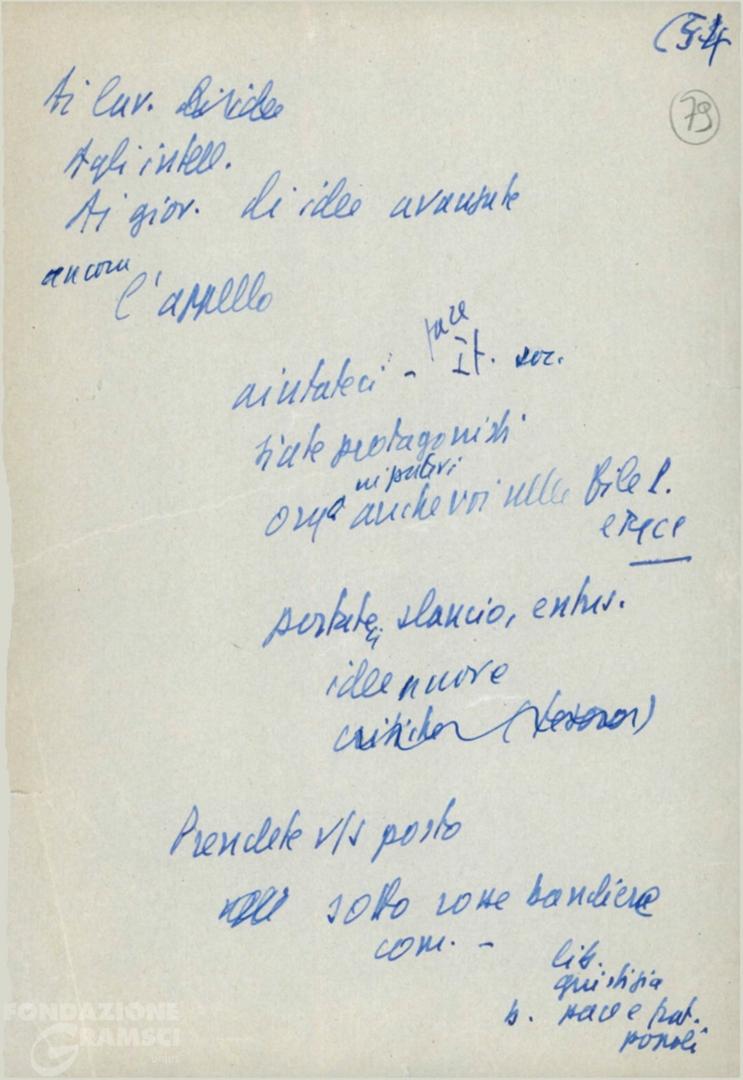 (54
79
Ai lav.
Agli intell.
Ai giov. di idee avanzate
ancora
l'appello
pace
aiutateci - It. soc.
siate protagonisti
anche voi nelle file l.
e FGCI
portateci slancio, entus.
idee nuove
critiche
Prendete v/s posto
sotto rosse bandiere
com. -
lib.
giustizia
b. pace e frat.
popoli
FONDAZIONE
GRAMSCI